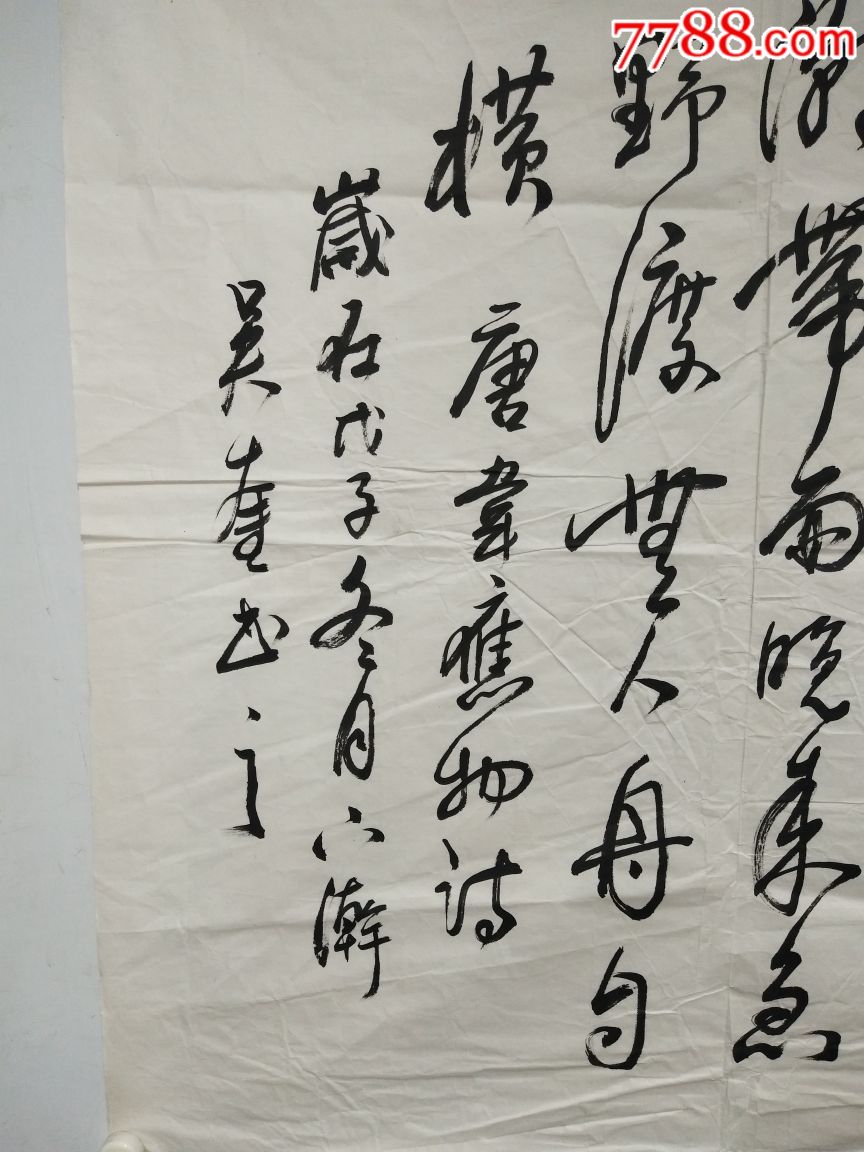 7788.com
潮帶雨晚來急
野渡無人舟自
橫 唐韋應物詩
歲在戊子冬月下澣
吳奎书